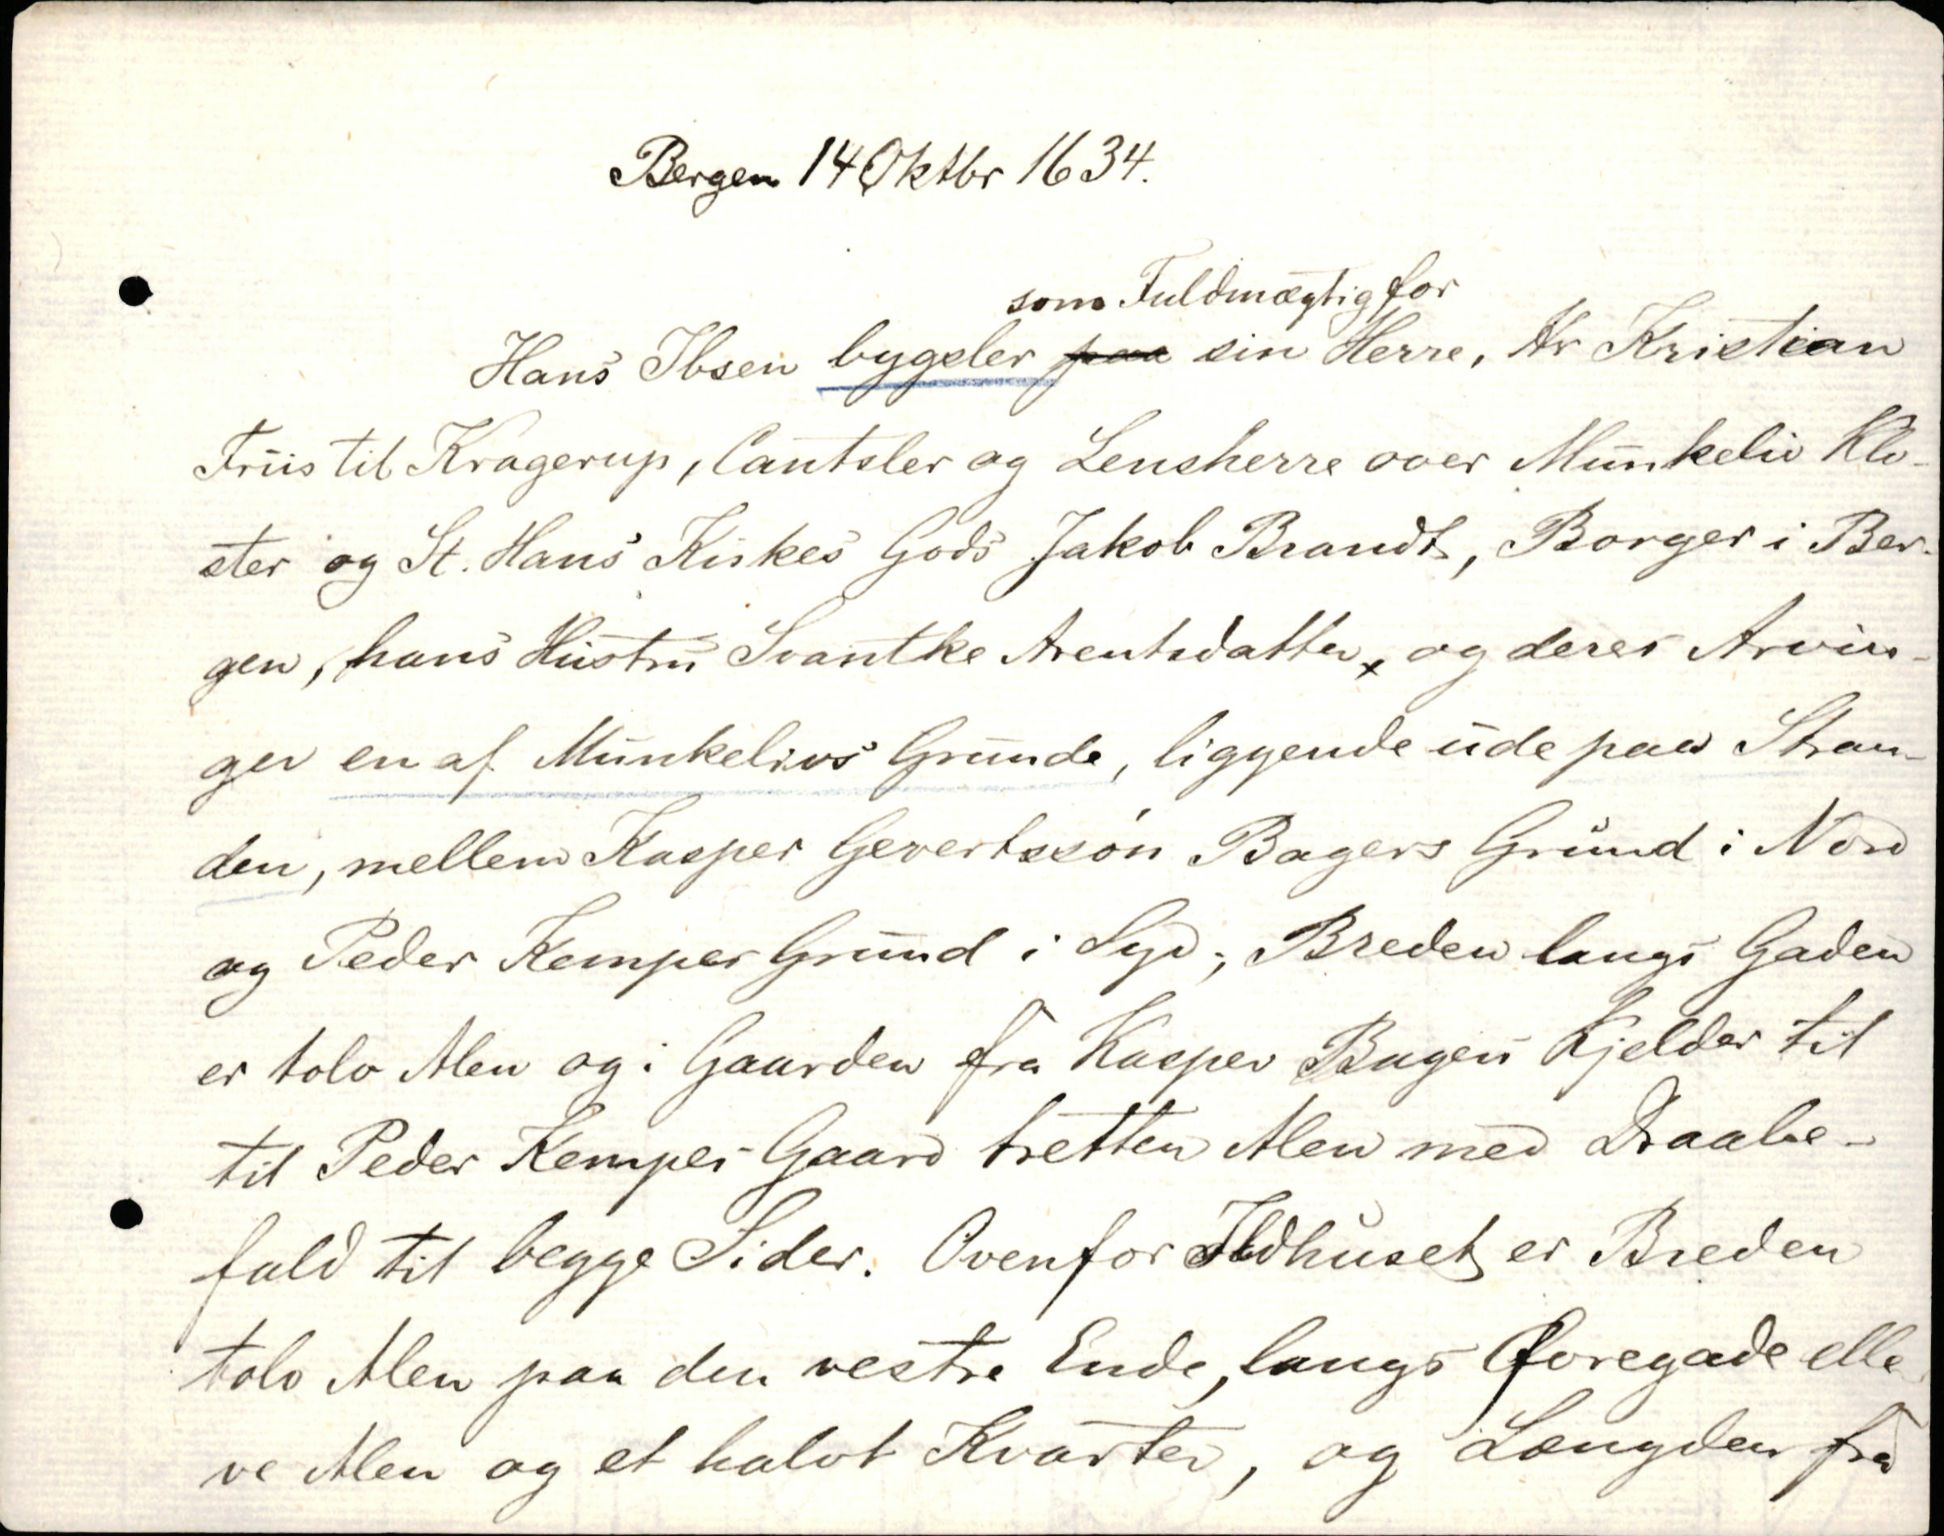 Bergen 14 Oktbr 1634.
som Fuldmægtig for
Hans Ibsen bygsler paa sin Herre, Hr Kristian
Friis til Kragerup, Cantsler og Lensherre over Munkeliv Klo-
ster og St. Hans Kirkes Gods Jakob Brandt, Borger i Ber-
gen, hans Hustru Svantke Arentsdatter x og deres Arvin-
ger en af Munkelivs Grunde, liggende ude paa Stran-
den, mellem Kasper Gevertssøn Bagers Grund i Nord
og Peder Kempes Grund i Syd; Breden langs Gaden
er tolv Alen og i Gaarden fra Kasper Bagers Kjelder til
til Peder Kempes Gaard tretten Alen med Draabe-
fald til begge Sider. Ovenfor Ildhuset er Breden
tolv Alen paa den vestre Ende, langs Øvregade elle
ve Alen og et halvt Kvarter, og Længden fra